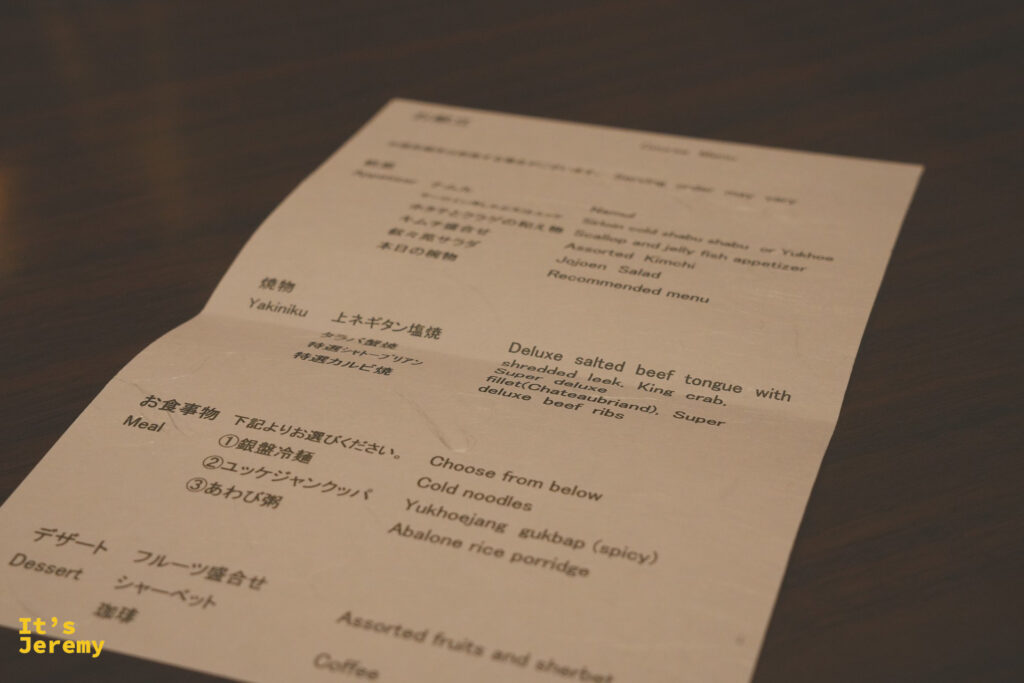 Course Menu
Serving order may vary
前菜
Appetizer ナムル Namul
Sirloin cold shabu shabu or Yukhoe
ホタテとクラゲの和え物 Scallop and jelly fish appetizer
キムチ盛合せ Assorted Kimchi
叙々苑サラダ Jojoen Salad
本日の椀物 Recommended menu
焼物
Yakiniku 上ネギタン塩焼 Deluxe salted beef tongue with
タラバ蟹焼 shredded leek, King crab,
特選シャトーブリアン Super deluxe
特選カルビ焼 fillet(Chateaubriand), Super
deluxe beef ribs
お食事物 下記よりお選びください。 Choose from below
Meal ①銀盤冷麺 Cold noodles
②ユッケジャンクッパ Yukhoejang gukbap (spicy)
③あわび粥 Abalone rice porridge
デザート フルーツ盛合せ Assorted fruits and sherbet
Dessert シャーベット
珈琲 Coffee
It's
Jeremy